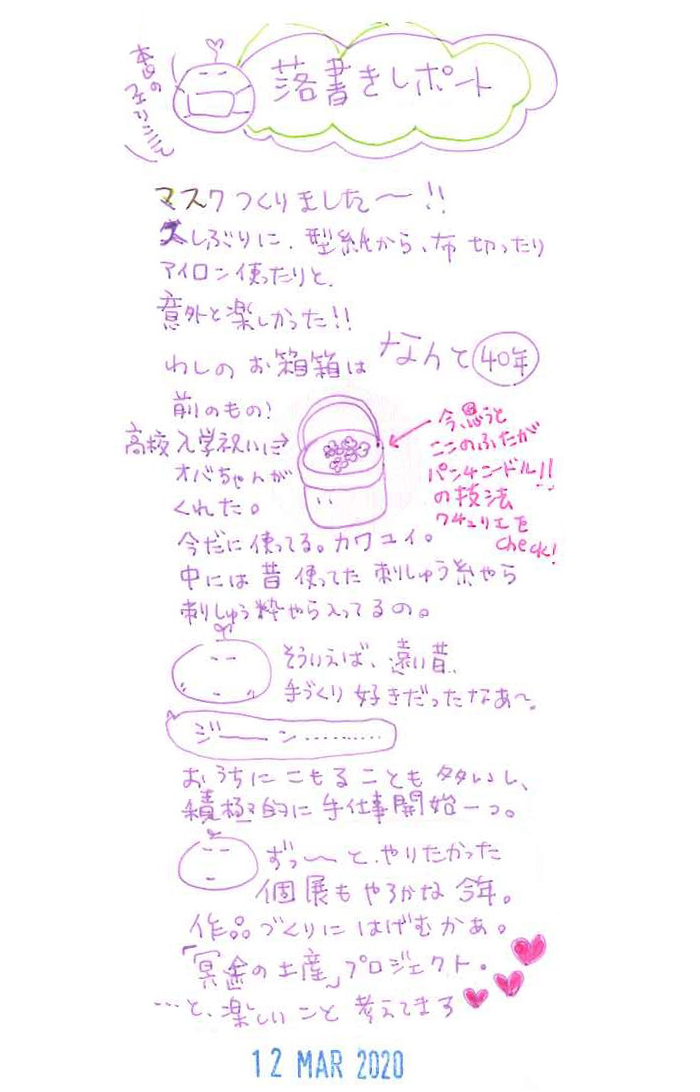 本日の
落書きレポート
マスクつくりました〜!!
久しぶりに、型紙から、布切ったり
アイロン使ったりと、
意外と楽しかった!!
わしのお箱箱はなんと40年
前のもの!
高校入学祝いに
オバちゃんが
くれた。
今思うと
ここのふたが
パンチニードル!!
の技法
クチュリエを
check!
今だに使ってる。カワユイ。
中には昔使ってた刺しゅう糸やら
刺しゅう粋やら入ってるの。
そういえば、遠い昔、
手づくり好きだったなあ〜。
ジーーン..........
おうちにこもることも多いし、
積極的に手仕事開始ーっ。
ずっ〜と、やりたかった
個展もやろかな今年。
作品づくりにはげむかぁ。
「冥途の土産」プロジェクト。
…と、楽しいこと考えてまろ
12 MAR 2020